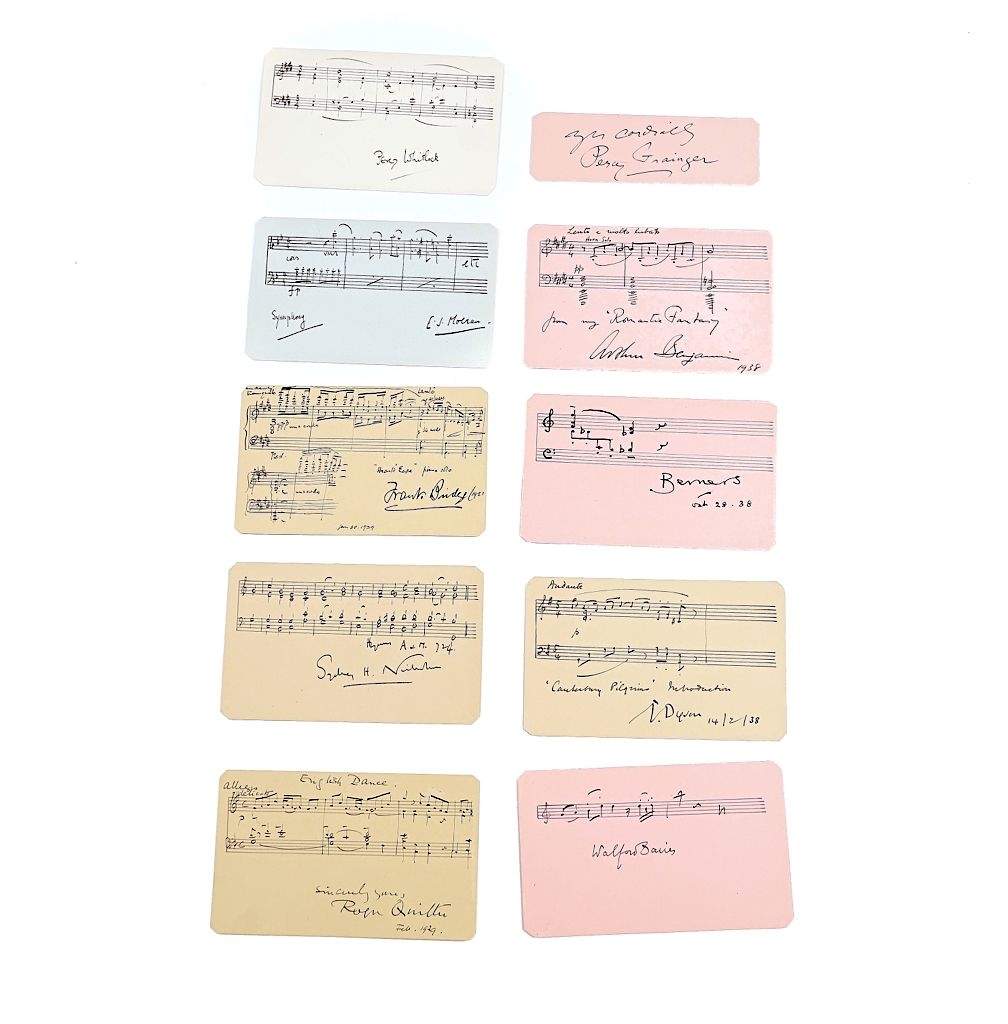 Percy Whitlock
Percy Grainger
cordially
Symphony
etc
E.J. Moeran.
Lento e molto rubato
Horn Solo
pp
from my "Romantic Fantasy"
Arthur Benjamin
1938
Ped.
"Heart's Ease" piano solo
Jan 20. 1929
Berners
28. 38
Hymns A & M. 724.
Sydney H. Nicholson
Andante
p
"Canterbury Pilgrims" Introduction
G. Dyson 14/2/38
English Dance.
Allegro
delicato
p
sincerely yours,
Roger Quilter
Feb. 1929.
Walford Davies